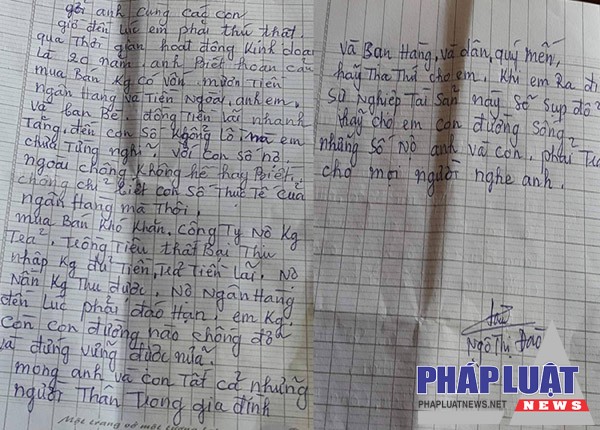 gởi anh cùng các con
giờ đến lúc em phải thú thật.
qua Thời gian hoạt động Kinh doan
Là 20 năm. anh Biết hoàn cả
mua Bán Kg có vốn. mượn Tiền
ngân Hàng và Tiền Ngoài anh em.
và bạn Bè. đồng Tiền lãi nhanh
Tăng, đến con số khổng Lồ. mà em
chưa Từng nghĩ. với con số nợ
ngoài chồng không hề hay Biết.
chồng chỉ biết con số Thực tế của
ngân Hàng mà Thôi.
mua Bán Khó Khăn. Công Ty Nợ Kg
Trả. Trồng Tiêu thất Bại Thu
nhập Kg đủ Tiền, Trả Tiền Lãi. Nợ
Nần Kg Thu được. Nợ Ngân Hàng
đến Lúc phải đáo Hạn. em Kg.
Còn con đường nào chống đỡ
và đứng vững được nữa.
mong anh và con Tất cả những
người Thân Trong gia đình
và Bạn Hàng, và dân, quý mến,
hãy Tha Thứ cho em. Khi em Ra đi
Sự Nghiệp Tài Sản này Sẽ Sụp đổ
hãy cho em con đường sống.
những Số Nợ anh và con. phải Trả
cho mọi người nghe anh.
Ngô Thị Đào
PHÁP LUẬT
PHAPLUATNEWS.NET
NEWS